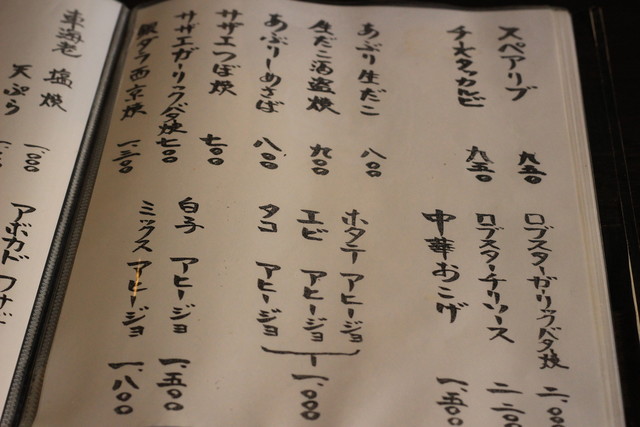 スペアリブ 九五〇
チーズタッカルビ 九五〇
あぶり生だこ 八〇〇
生だこ酒盗焼 九〇〇
あぶりしめさば 八〇〇
サザエつぼ焼 七〇〇
サザエガーリックバタ焼 七〇〇
銀ダラ西京焼
ロブスターガーリックバタ焼 二、〇〇〇
ロブスターチリソース 二、二〇〇
中華おこげ 一、五〇〇
ホタテ アヒージョ
エビ アヒージョ 一、〇〇〇
タコ アヒージョ
白子 アヒージョ 一、五〇〇
ミックス アヒージョ 一、八〇〇
車海老 塩焼 一、〇〇〇
天ぷら
アボカド